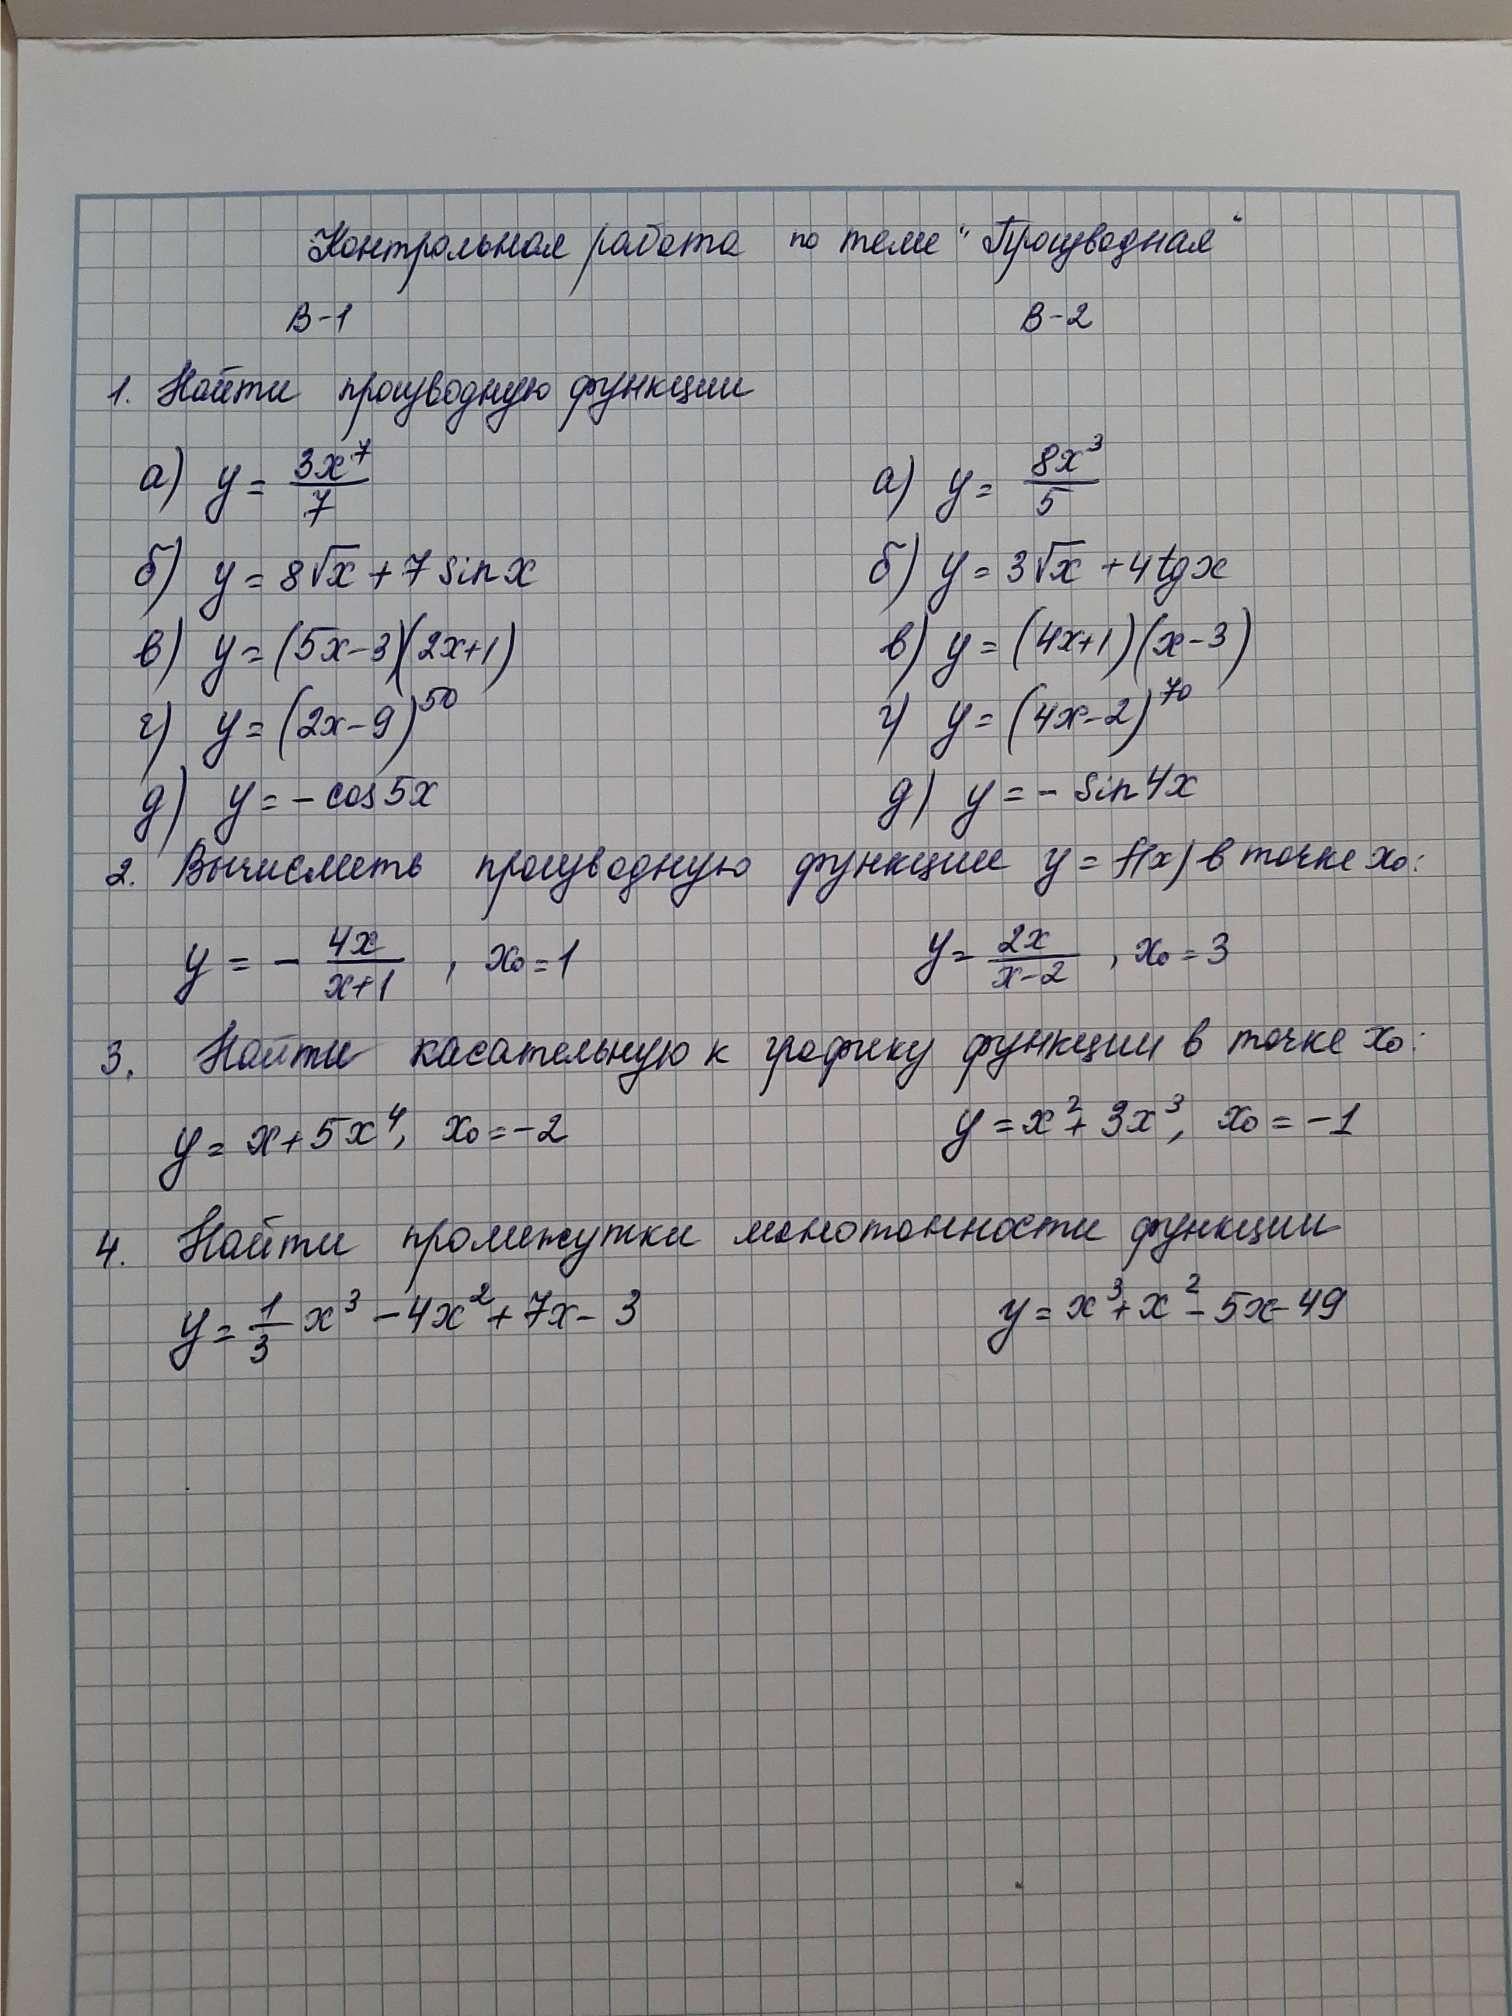 Контрольная работа по теме "Производная"
В-1 В-2
1. Найти производную функции
а) y = 3x⁷/7 а) y = 8x³/5
б) y = 8√x + 7 sin x б) y = 3√x + 4 tg x
в) y = (5x-3)(2x+1) в) y = (4x+1)(x-3)
г) y = (2x-9)⁵⁰ г) y = (4x-2)⁷⁰
д) y = - cos 5x д) y = - sin 4x
2. Вычислить производную функции y = f(x) в точке x₀:
y = - 4x/x+1 , x₀ = 1 y = 2x/x-2 , x₀ = 3
3. Найти касательную к графику функции в точке x₀:
y = x + 5x⁴, x₀ = -2 y = x² + 3x³, x₀ = -1
4. Найти промежутки монотонности функции
y = 1/3 x³ - 4x² + 7x - 3 y = x³ + x² - 5x - 49